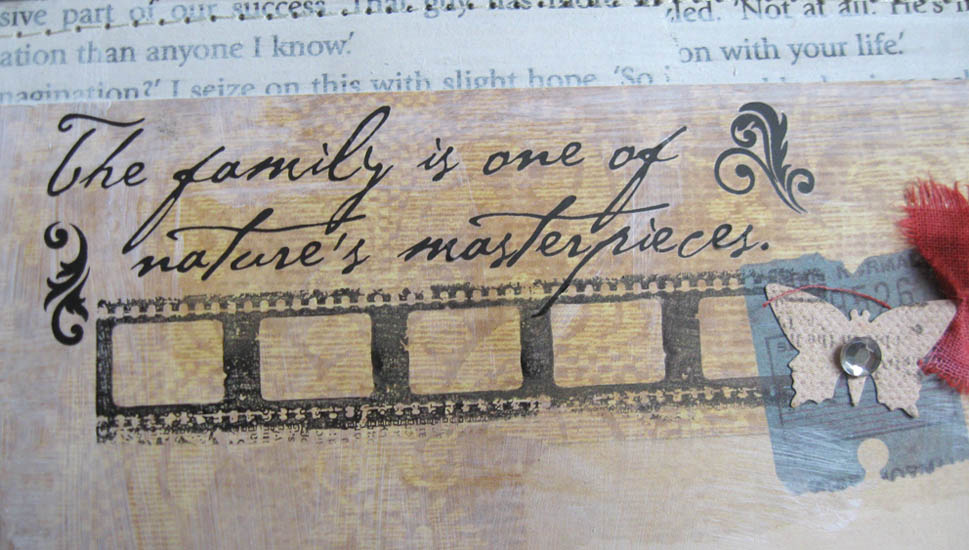 sive part of our success. That guy has more
ded. 'Not at all. He's
ation than anyone I know.'
on with your life.'
magination?' I seize on this with slight hope. 'So
The family is one of
nature's masterpieces.